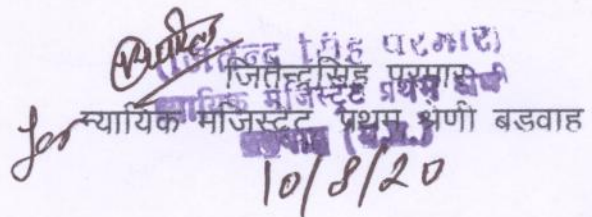 (जितेन्द्र सिंह परमार)
जितेन्द्रसिंह परमार
न्यायिक मजिस्ट्रेट प्रथम श्रेणी
न्यायिक मजिस्ट्रेट, प्रथम श्रेणी बडवाह
(म.प्र.)
10/8/20